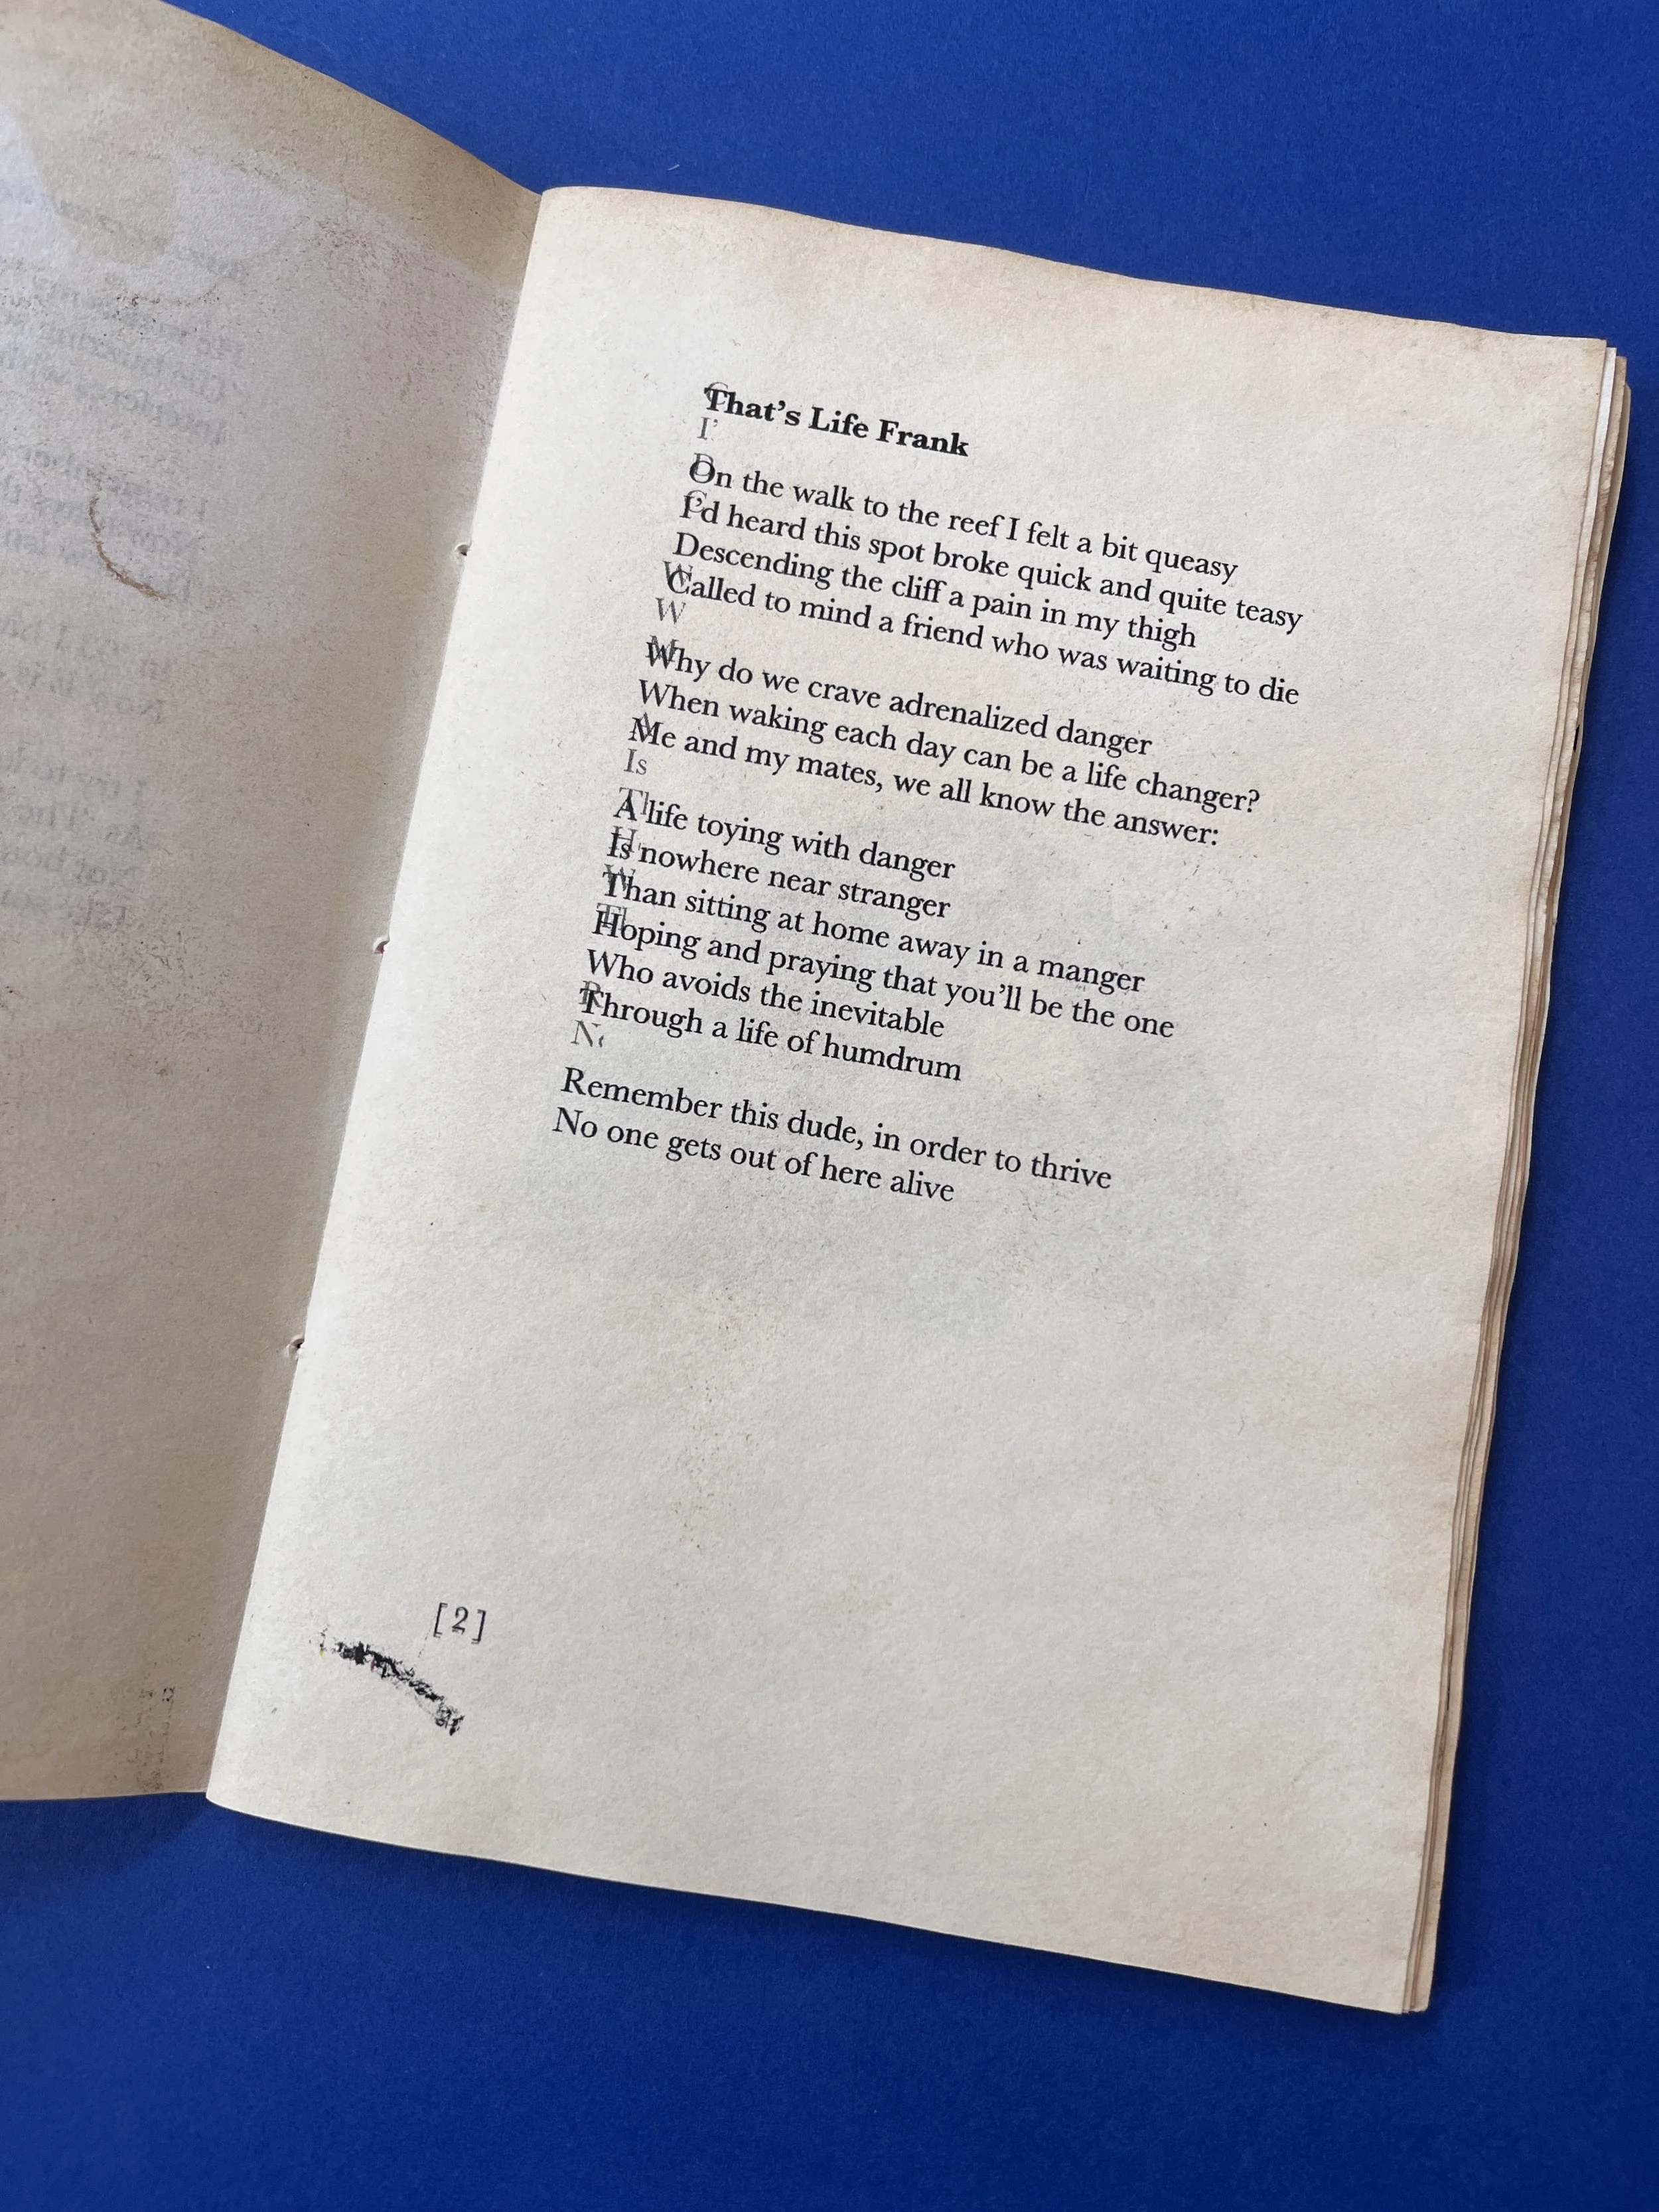 That's Life Frank
On the walk to the reef I felt a bit queasy
I'd heard this spot broke quick and quite teasy
Descending the cliff a pain in my thigh
Called to mind a friend who was waiting to die
Why do we crave adrenalized danger
When waking each day can be a life changer?
Me and my mates, we all know the answer:
A life toying with danger
Is nowhere near stranger
Than sitting at home away in a manger
Hoping and praying that you'll be the one
Who avoids the inevitable
Through a life of humdrum
Remember this dude, in order to thrive
No one gets out of here alive
[2]